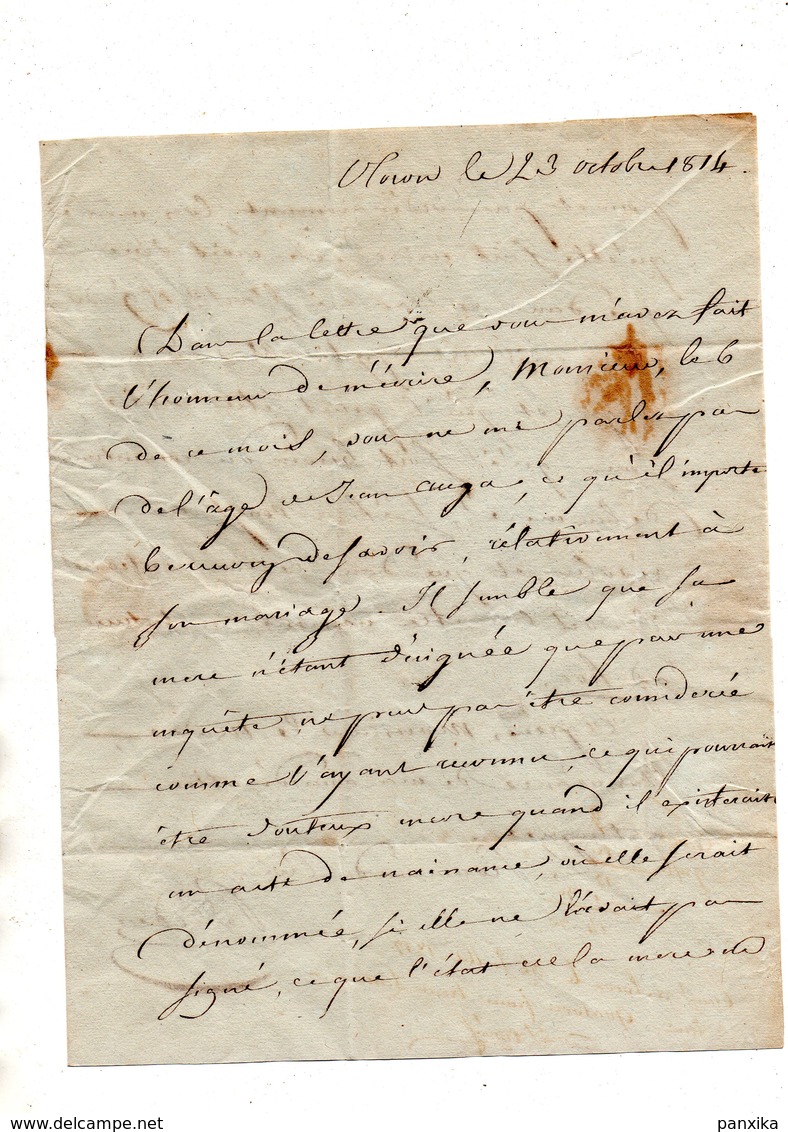 Oloron le 23 octobre 1814.
Dans la lettre que vous m'avez fait
l'honneur de m'écrire, Monsieur, le 6
de ce mois, vous ne me parlez pas
de l'âge de Jean Auga, ce qu'il importe
beaucoup de savoir, rélativement à
son mariage. Il semble que sa
mere n'étant désignée que par une
enquête, ne peut pas être considerée
comme l'ayant reconnu, ce qui pourrait
être douteux encore quand il existerait
un acte de naissance, où elle serait
dénommée, si elle ne l'avait pas
signé, ce que l'état de la mere ne
panxika